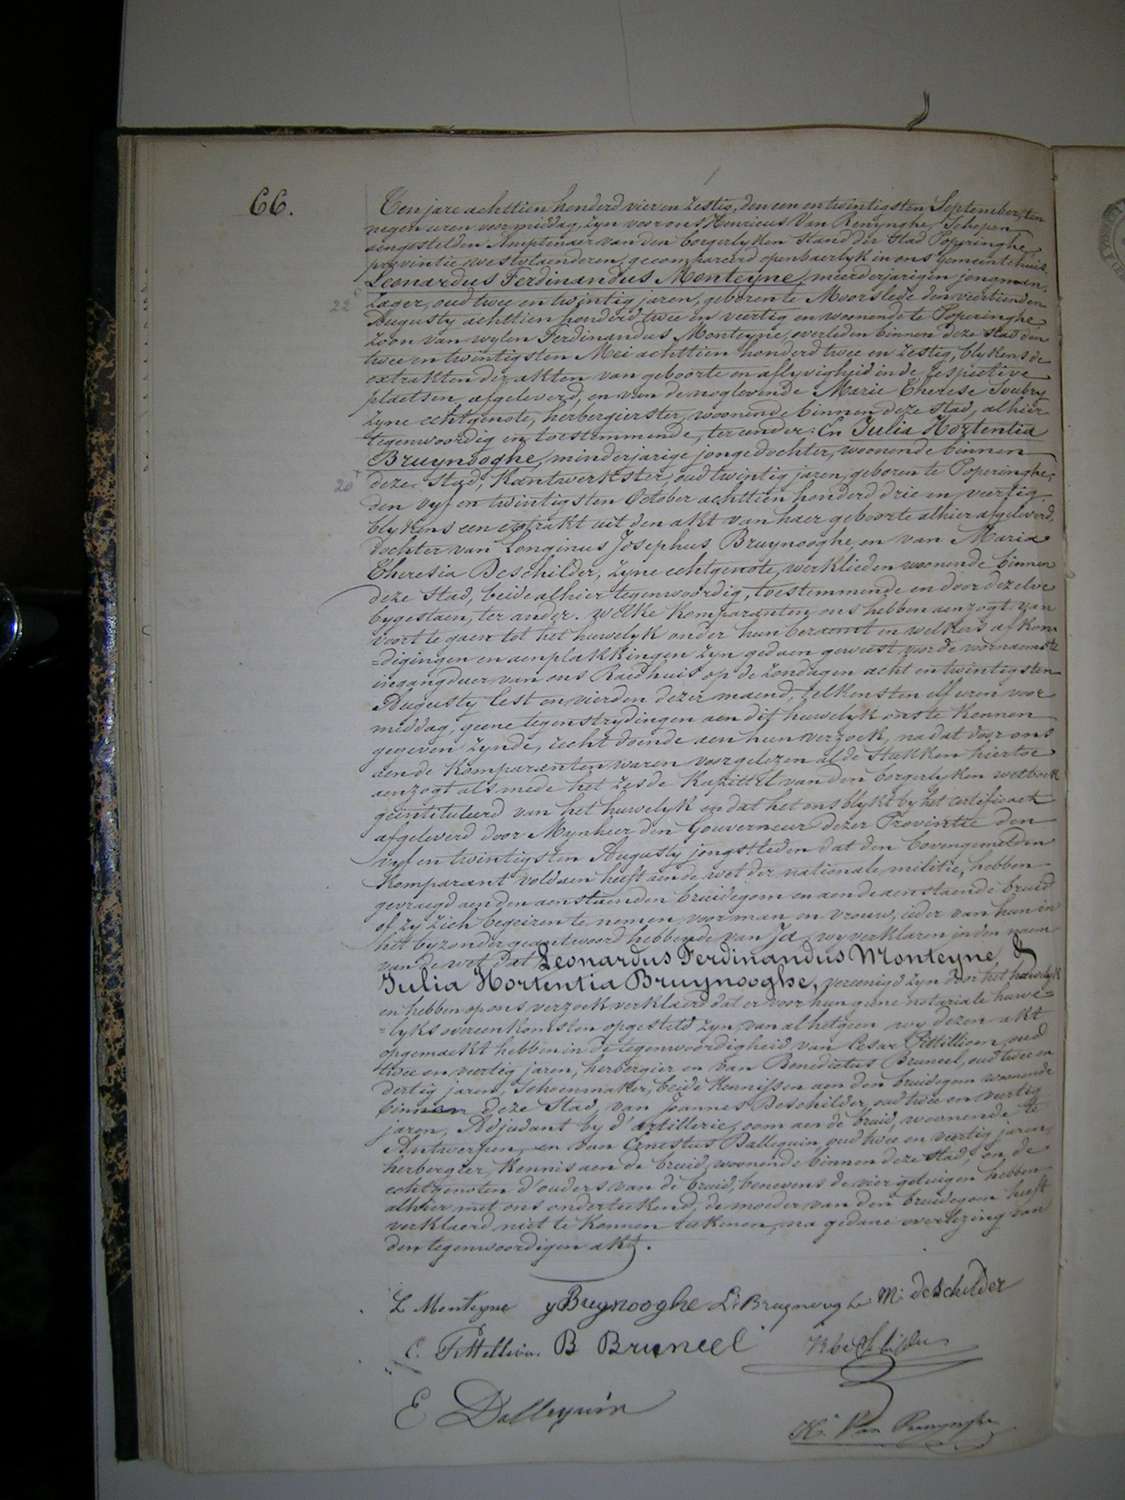 66.
Ten jare achttien honderd vier en zestig, den een en twintigsten September, ten
negen uren voormiddag, zyn voor ons Henricus Van Renynghe, Schepen
aengestelden Amptenaer van den borgerlyken Stand der Stad Poperinghe
provintie westvlaenderen, gecompareerd openbaerlyk in ons Gemeentehuis
Leonardus Ferdinandus Monteyne, meerderjarigen jongman,
22 zager, oud twee en twintig jaren, geboren te Moorslede den veertienden
Augusty achttien honderd twee en veertig en woonende te Poperinghe
zoon van wylen Ferdinandus Monteyne, overleden binnen deze stad den
twee en twintigsten Mei achttien honderd twee en zestig, blykens de
extrakten der akten van geboorte en aflyvigheid in de respective
plaetsen afgeleverd, en van de nog levende Marie Therese
zyne echtgenote, herbergierster, woonende binnen deze stad, alhier
tegenwoordig en toestemmende, ter eender: En Julia Hortentia
Bruynooghe, minderjarige jonge dochter, woonende binnen
20 deze Stad, Kantwerkster, oud twintig jaren, geboren te Poperinghe
den vyf en twintigsten October achttien honderd drie en veertig
blykens een extrakt uit den akt van haer geboorte alhier afgeleverd,
Dochter van Longinus Josephus Bruynooghe, en van Maria
Theresia Deschilder, zyne echtgenote, werklieden woonende binnen
deze Stad, beide alhier tegenwoordig, toestemmende en door dezelve
bygestaen, ter ander. Welke Komparanten ons hebben aenzogt van
voort te gaen tot het huwelyk onder hun beraemt en welkers afkon=
=digingen en aenplakkingen zyn gedaen geweest voor de voornaemste
ingangdeur van ons Raedhuis op de zondagen acht en twintigsten
Augusty lest en vierden dezer maend, telkensten elf uren voor
middag, geene tegenstrydingen aen dit huwelyk ons te kennen
gegeven zynde, recht doende aen hun verzoek, na dat door ons
aen de Komparanten waren voorgelezen al de Stukken hiertoe
aenzogt als mede het zesde Kapittel van den borgerlyken wetboek
geintituleerd van het huwelyk en dat het ons blykt by het certificaet
afgeleverd door Mynheer den Gouverneur dezer Provintie den
vyf en twintigsten Augusty jongstleden dat den bovengemelden
Komparant voldaen heeft aen de wet der nationale militie, hebben
gevraegd aen den aenstaenden bruidegom en aen de aenstaende bruid
of zy zich begeiren te nemen voor man en vrouw, ieder van hun in
het byzonder geantwoord hebbende van Ja, wy verklaren in den naem
van de wet dat Leonardus Ferdinandus Monteyne, &
Julia Hortentia Bruynooghe, vereenigd zyn door het huwelyk
en hebben op ons verzoek verklaerd dat er voor hun geene notariale huwe=
=lyks overeenkomsten opgesteld zyn, van al hetgeen wy dezen akt
opgemaekt hebben in de tegenwoordigheid van Cesar Pittillion, oud
twee en veertig jaren, herbergier en van Benedictus Bruneel, oud twee en
dertig jaren, Schoenmaker, beide Kennissen aen den bruidegom woonende
binnen deze Stad, van Joannes Deschilder, oud twee en veertig
jaren, Adjudant by d'artillerie, oom aen de bruid, woonende te
Antwerpen, en van Ernestus Dallequin, oud twee en veertig jaren,
herbergier, Kennis aen de bruid, woonende binnen deze Stad, en de
echtgenoten d'ouders van de bruid, benevens de vier getuigen hebben
alhier met ons onderteekend, de moeder van den bruidegom heeft
verklaerd niet te konnen teekenen, na gedane overlezing van
den tegenwoordigen akt.
L Monteyne y Bruynooghe L Bruynooghe M. deschilder
C. Pittillion B Bruneel
E Dallequin
H. Van Renynghe